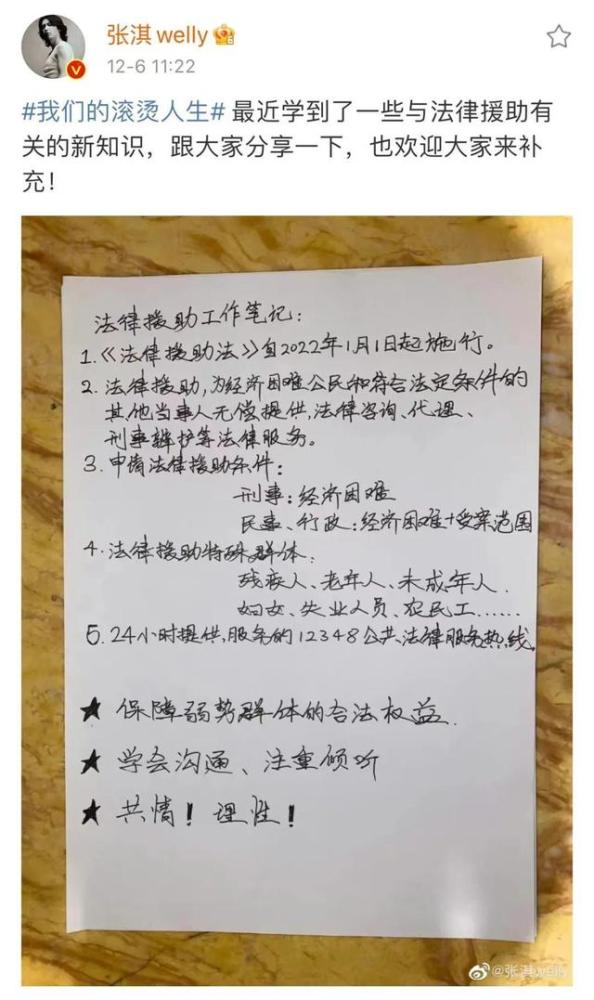 张淇welly
12-6 11:22
#我们的滚烫人生# 最近学到了一些与法律援助有
关的新知识，跟大家分享一下，也欢迎大家来补
充！
法律援助工作笔记：
1.《法律援助法》自2022年1月1日起施行。
2. 法律援助，为经济困难公民和符合法定条件的
其他当事人无偿提供，法律咨询、代理、
刑事辩护等法律服务。
3. 申请法律援助条件：
刑事：经济困难
民事、行政：经济困难+受案范围
4. 法律援助特殊群体：
残疾人、老年人、未成年人、
妇女、失业人员、农民工……
5. 24小时提供，服务的12348公共法律服务热线。
★ 保障弱势群体的合法权益.
★ 学会沟通、注重倾听
★ 共情！理性！
@张淇welly